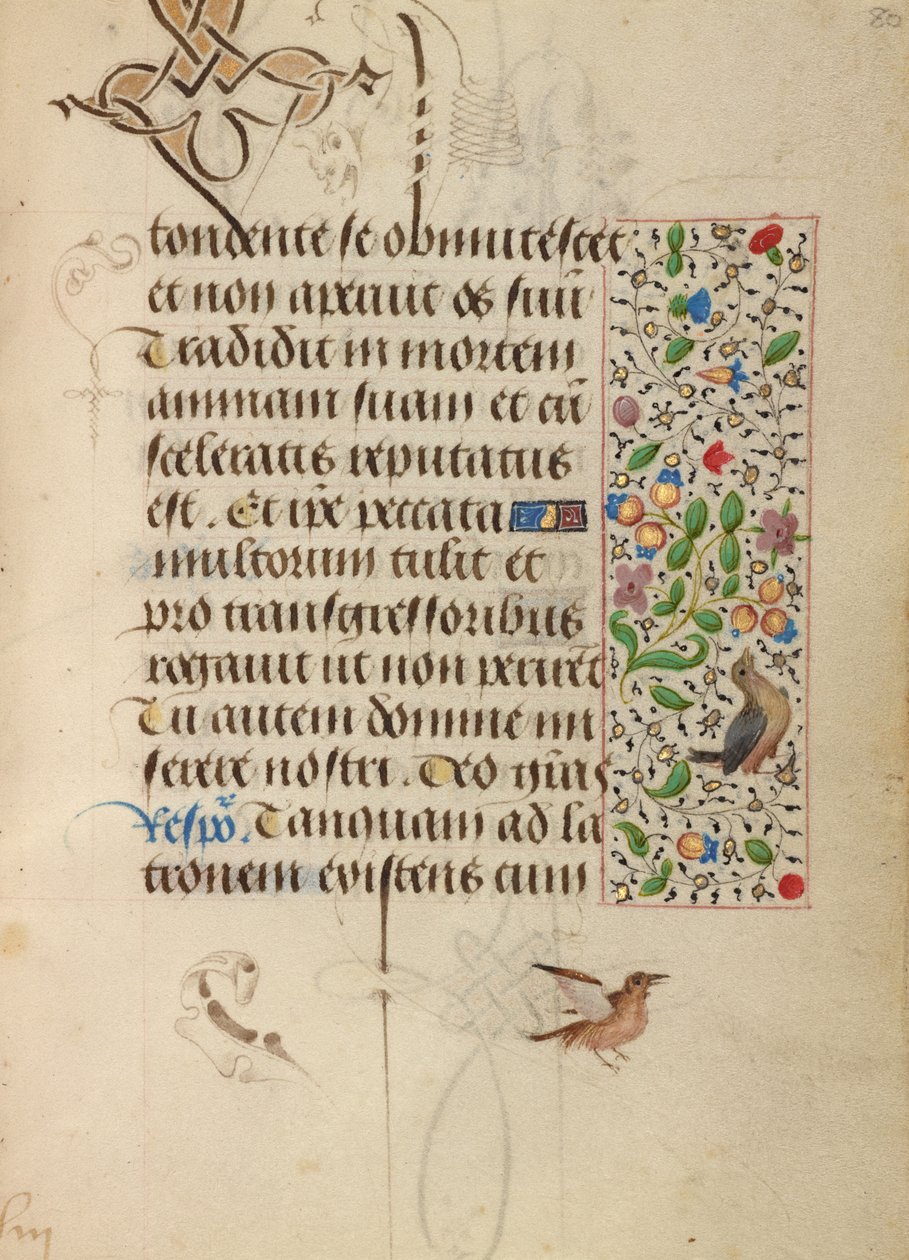 80
tondente se obmutescet
et non aperuit os suū
Tradidit in mortem
animam suam et cū
sceleratis reputatus
est. Et ip̄e peccata
multorum tulit et
pro transgressoribus
rogauit ut non perirēt
Tu autem domine mi
serere nostri. Deo gr̄as
Respō. Tanquam ad la
tronem existens cum